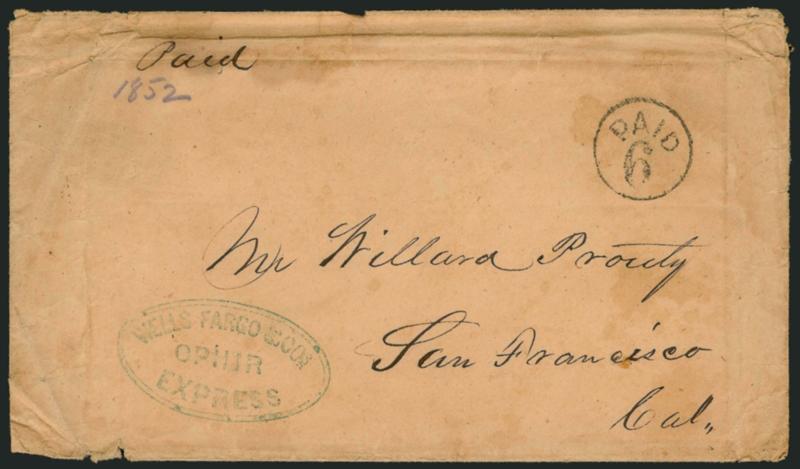 Paid
1852
PAID
6
Mr Willard Prouty
San Francisco
Cal,,
WELLS FARGO & CO'S
OPHIR
EXPRESS